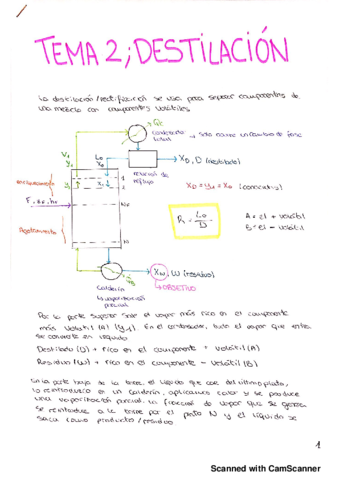 TEMA 2; DESTILACIÓN
La destilación/rectificación se usa para separar componentes de
una mezcla con componentes volátiles.
condensador → solo ocurre un cambio de fase
total
V1
y1
Lo
xo
XD, D (destilado)
relación de
reflujo
XD = y1 = Xo (concentrac)
enriquecimiento
F, XF, hF
NF
Agotamiento
N
R = Lo / D
A = el + volátil
B = el - volátil
XW, W (residuo)
↳ OBJETIVO
Calderín
↳ vaporización
parcial
Por la parte superior sale el vapor más rico en el componente
más volátil (A) (y1). En el condensador, todo el vapor que entra
se convierte en líquido
Destilado (D) → rico en el componente + volátil (A)
Residuo (W) → rico en el componente - volátil (B)
En la parte baja de la torre, el líquido que cae del último plato,
lo reintroduce en un calderín, aplicamos calor y se produce
una vaporización parcial, la fracción de vapor que se genera
se reintroduce a la torre por el plato N y el líquido se
saca como producto/residuo
1
Scanned with CamScanner